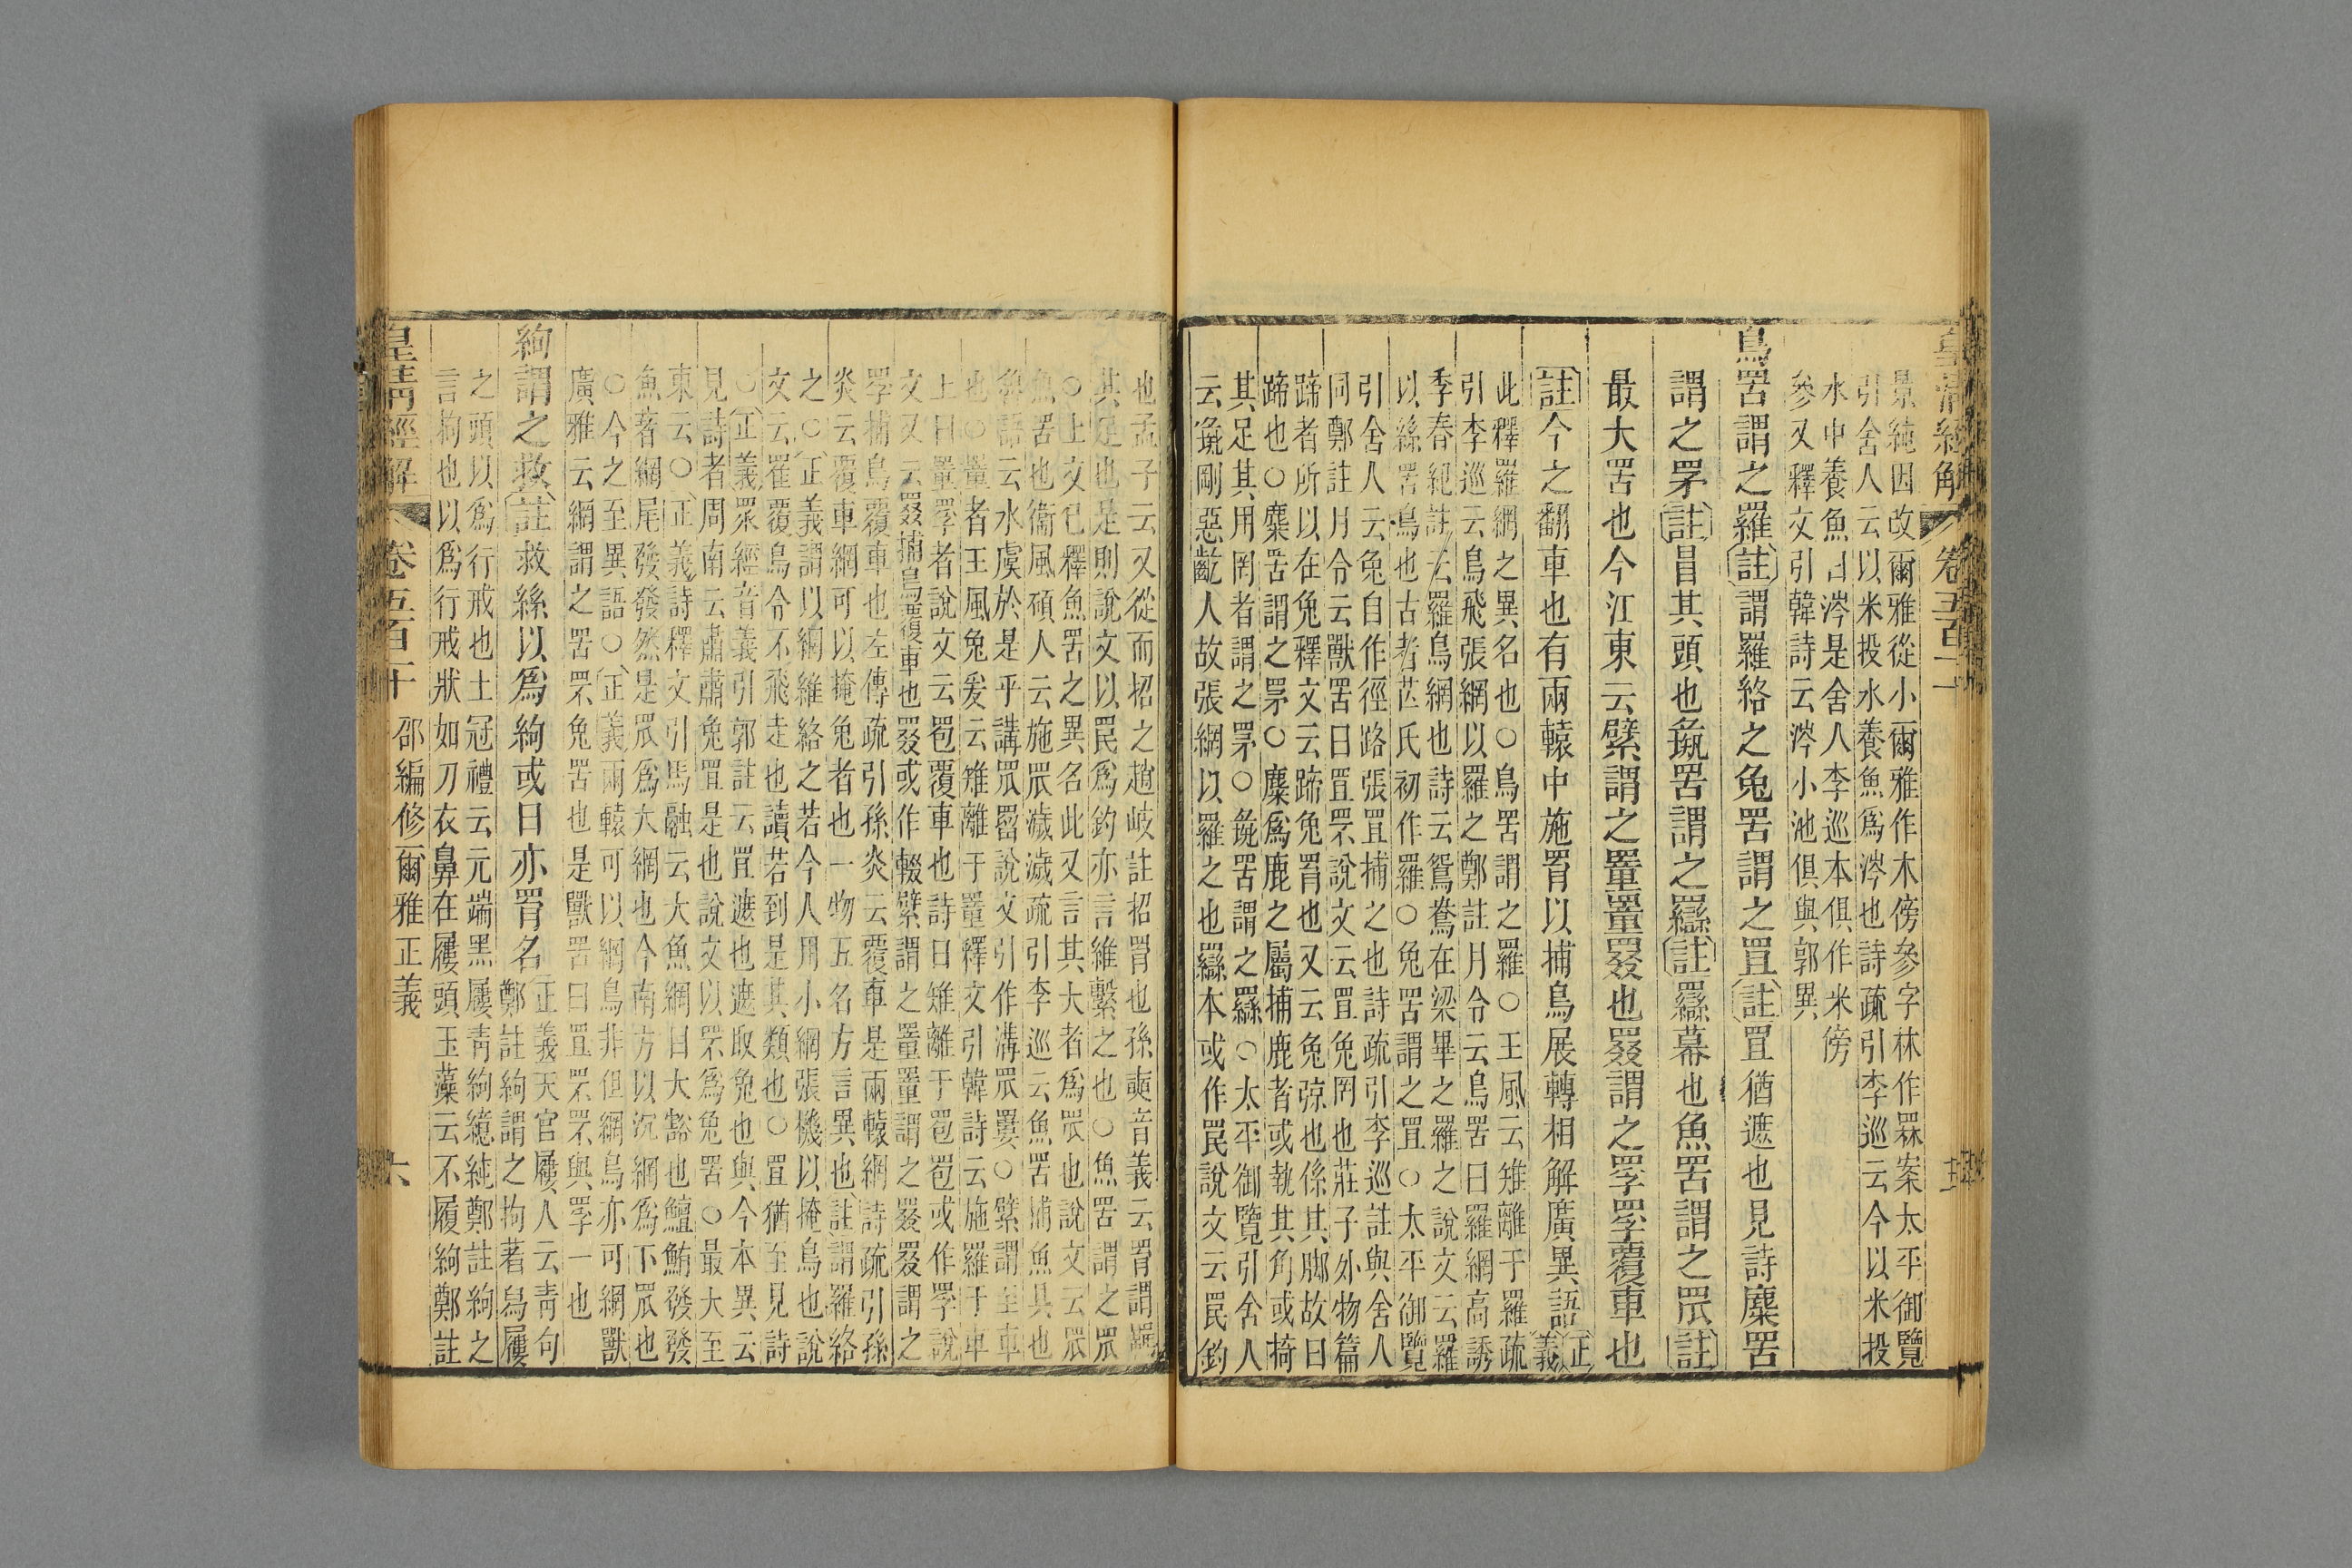 景純因改爾雅從小爾雅作木傍參字林作罧案太平御覽
引舍人云以米投水養魚爲涔也詩疏引李巡云今以米投
水中養魚曰涔是舍人李巡本俱作米傍
參又釋文引韓詩云涔小池俱與郭異
鳥罟謂之羅註謂羅絡之兔罟謂之罝註罝猶遮也見詩麋罟
謂之罞註冒其頭也彘罟謂之羉註羉幕也魚罟謂之罛註
最大罟也今江東云繴謂之罿罿罬也罬謂之罦罦覆車也
註今之翻車也有兩轅中施罥以捕鳥展轉相解廣異語正義
此釋羅網之異名也○鳥罟謂之羅○王風云雉離于羅疏
引李巡云鳥飛張網以羅之鄭註月令云鳥罟曰羅網高誘
季春紀註云羅鳥網也詩云鴛鴦在梁畢之羅之說文云羅
以絲罟鳥也古者芒氏初作羅○兔罟謂之罝○太平御覽
引舍人云兔自作徑路張罝捕之也詩疏引李巡註與舍人
同鄭註月令云獸罟曰罝罘說文云罝兔罔也莊子外物篇
蹄者所以在兔釋文云蹄兔罥也又云兔弶也係其腳故曰
蹄也○麋罟謂之罞○麋爲鹿之屬捕鹿者或執其角或掎
其足其用罔者謂之罞○彘罟謂之羉○太平御覽引舍人
云彘剛惡齕人故張網以羅之也羉本或作罠說文云罠釣
也孟子云又從而招之趙岐註招罥也孫奭音義云罥謂羂
其足也是則說文以罠爲釣亦言維繫之也○魚罟謂之罛
○上文已釋魚罟之異名此又言其大者爲罛也說文云罛
魚罟也衞風碩人云施罛濊濊疏引李巡云魚罟捕魚具也
魯語云水虞於是乎講罛罶說文引作溝罛罶○繴謂至車
也○罿者王風兔爰云雉離于罿釋文引韓詩云施羅于車
上曰罿罦者說文云䍖覆車也詩曰雉離于䍖䍖或作罦說
文又云罬捕鳥覆車也罬或作輟繴謂之罿罿謂之罬罬謂之
罦捕鳥覆車也左傳疏引孫炎云覆車是兩轅網詩疏引孫
炎云覆車網可以掩兔者也一物五名方言異也註謂羅絡
之○正義謂以網維絡之若今人用小網張機以掩鳥也說
文云罹覆鳥令不飛走也讀若到是其類也○罝猶至見詩
○正義眾經音義引郭註云罝遮也遮取兔也與今本異云
見詩者周南云肅肅兔罝是也說文以罘爲兔罟○最大至
東云○正義詩釋文引馬融云大魚網目大豁也鱣鮪發發
魚著網尾發發然是罛爲大網也今南方以沉網爲下罛也
○今之至異語○正義兩轅可以網鳥非但網鳥亦可網獸
廣雅云網謂之罟罘兔罟也是獸罟曰罝罘罘與罦一也
絇謂之救註救絲以爲絇或曰亦罥名正義天官屨人云青句
鄭註絇謂之拘著舄屨
之頭以爲行戒也士冠禮云元端黑屨青絇繶純鄭註絇之
言拘也以爲行戒狀如刀衣鼻在屨頭玉藻云不履絇鄭註
皇清經解 卷五百十 邵編修爾雅正義 六